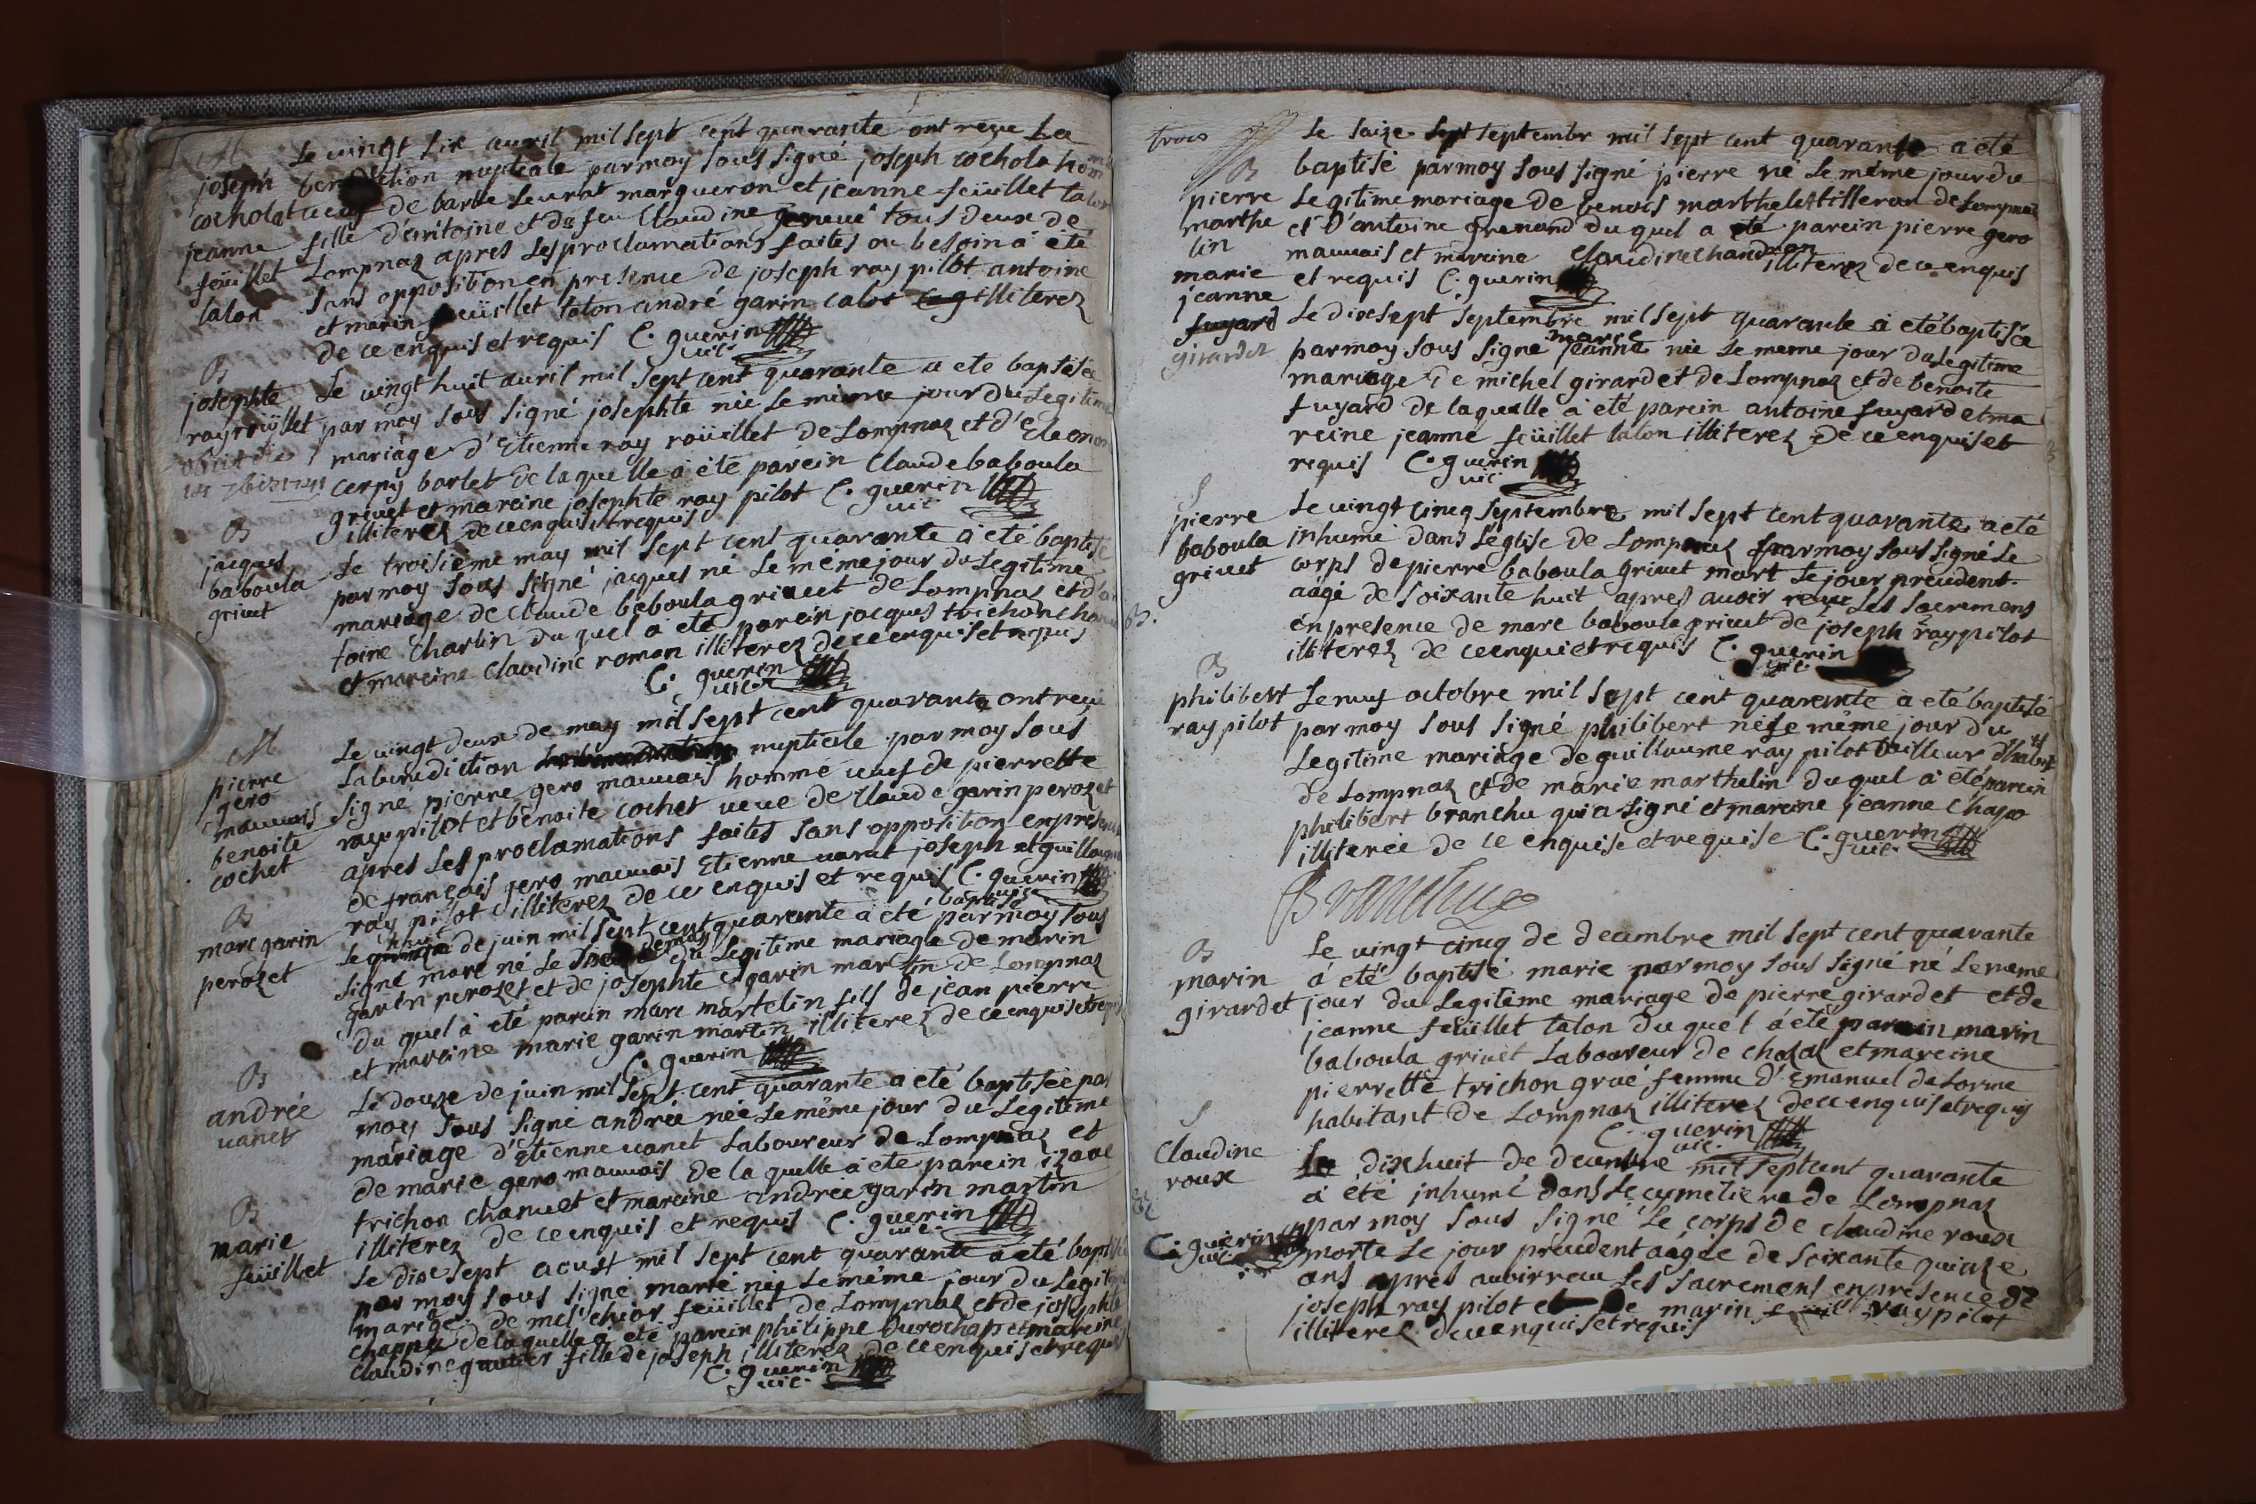 M
joseph
cochola
jeanne
feüillet
talon
Le vingt six avril mil sept cent quarante ont reçu La
benediction nuptiale par moy sous signé joseph cochola
veuf de barbe marqueron et jeanne feüillet talon
fille d'antoine et de feu Claudine tous deux de
Lompnaz apres les proclamations faites ou besoin à été
sans opposition en presence de joseph ray pilot antoine
et marin feüillet talon andré garin calot illiterez
de ce enquis et requis C. guerin
vic.
B
josephte
ray roüillet
Le vingt huit avril mil sept cent quarante a eté baptisée
par moy sous signé josephte née le même jour du Legitime
mariage d'Etienne ray roüillet de Lompnaz et d'
cerpy barlet de la quelle à été parein Claude baboula
grivet et mareine josephte ray pilot C. guerin
vic
illiterez de ce enquis et requis
B
jaques
baboula
grivet
Le troisième may mil sept cent quarante à été baptisé
par moy sous signé jaques né le même jour du Legitime
mariage de Claude baboula grivet de Lompnaz et d'an
toine Charlin du quel à été parein jacques trichon
et mareine Claudine roman illiterez de ce enquis et requis
C. guerin
vic.
M
pierre
gero
mauvais
benoite
cochet
Le vingt deux de may mil sept cent quarante ont reçu
La benediction nuptiale par moy sous
signé pierre gero mauvais homme veuf de pierrette
ray pilot et benoite cochet veuve de Claude garin perozet
apres les proclamations faites sans opposition en presence
de françois gero mauvais Etienne vanet joseph et guillaume
ray pilot illiterez de ce enquis et requis C. guerin
vic.
B
marc garin
perozet
Le huit de juin mil sept cent quarante à été baptisé par moy sous
signé marc né le du Legitime mariage de marin
garin perozet et de josephte garin martin de Lompnaz
du quel à été parein marc martelin fils de jean pierre
et mareine marie garin martin illiterez de ce enquis et requis
C. guerin
B
andrée
vanet
Le douze de juin mil sept cent quarante a été baptisée par
moy sous signé andrée née le même jour du Legitime
mariage d'Etienne vanet Laboureur de Lompnaz et
de marie gero mauvais de la quelle à été parein
trichon chanuet et mareine andrée garin martin
illiterez de ce enquis et requis C. guerin
vic.
B
marie
feüillet
Le dix sept aoust mil sept cent quarante à été baptisée
par moy sous signé marie née le même jour du Legitime
mariage de melchior feüillet de Lompnaz et de josephte
de la quelle a été parein philippe et mareine
Claudine fille de joseph illiterez de ce enquis et requis
C. guerin
vic.
trois
B
pierre
marthe
lin
Le saize septembr mil sept cent quarante a eté
baptisé par moy sous signé pierre né le même jour du
Legitime mariage de benois marthelin tilleran de Lompnaz
et d'antoine grenand du quel a été parein pierre gero
mauvais et mareine Claudine illiterez de ce enquis
et requis C. guerin
marie
jeanne
fuyard
girardet
Le dix sept septembre mil sept quarante à eté baptisée
par moy sous signé marie jeanne née le meme jour du Legitime
mariage de michel girardet de Lompnaz et de benoite
fuyard de laquelle à été parein antoine fuyard et ma
reine jeanne feüillet talon illiterez de ce enquis et
requis C. guerin
vic
S
pierre
baboula
grivet
Le vingt cinq septembre mil sept cent quarante a eté
inhumé dans l'église de Lompnaz par moy sous signé Le
corps de pierre baboula grivet mort le jour precedent
aâgé de soixante huit apres avoir reçu Les sacremens
en presence de marc baboula grivet de joseph ray pilot
illiterez de ce enqui et requis C. guerin
vic.
B
philibert
ray pilot
Le neuf octobre mil sept cent quarante à eté baptisé
par moy sous signé philibert né le même jour du
Legitime mariage de guillaume ray pilot tailleur d'habit
de Lompnaz et de marie marthelin du quel à été parein
philibert branchu qui a signé et mareine jeanne chapo
illiterée de ce enquise et requise C. guerin
vic.
Branchu
B
marin
girardet
Le vingt cinq de decembre mil sept cent quarante
à été baptisé marie par moy sous signé né le meme
jour du Legitime mariage de pierre girardet et de
jeanne feüillet talon du quel à été parein marin
baboula grivet Laboureur de chazal et mareine
pierrette trichon grué femme d'Emanuel de Lorme
habitant de Lompnaz illiterez de ce enquis et requis
C. guerin
vic.
S
Claudine
roux
Le dix huit de decembre mil sept cent quarante
a été inhumé dans Le cymetiere de Lompnaz
par moy sous signé Le corps de claudine roux
morte Le jour precedent aâgée de soixante quinze
ans apres avoir reçu Les sacremens en presence de
joseph ray pilot et de marin ray pilot
illiterez de ce enquis et requis
C. guerin
vic.